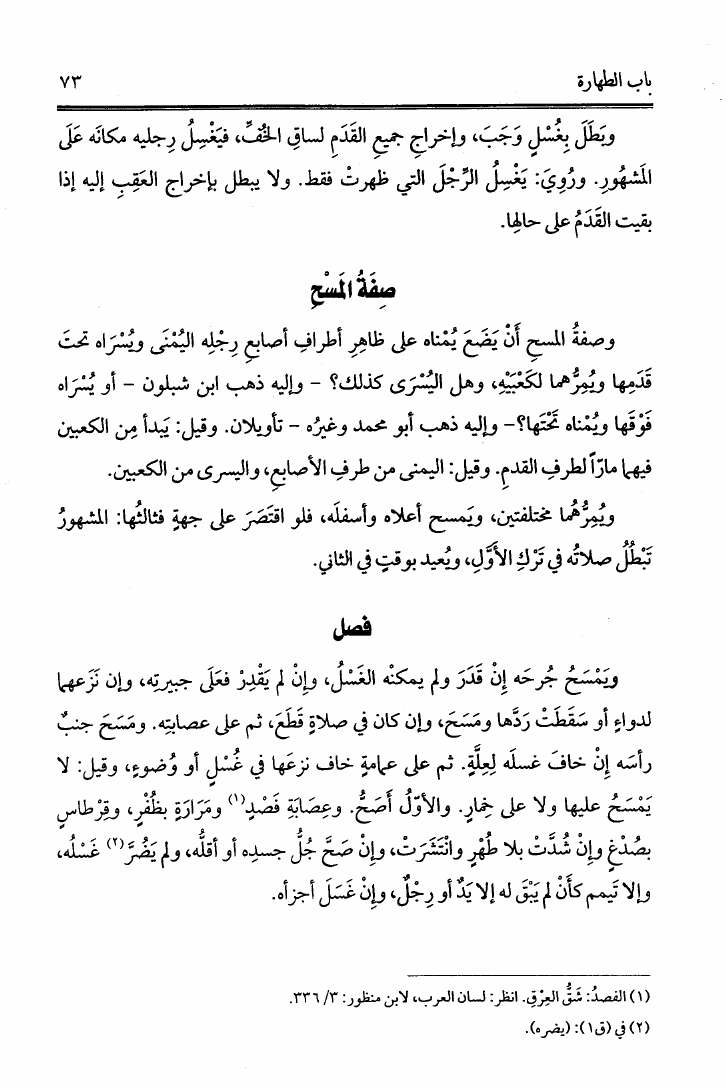 باب الطهارة ٧٣
وبَطَلَ بِغُسْلٍ وَجَبَ، وإخراجِ جميعِ القَدَمِ لساقِ الخُفِّ، فيَغْسِلُ رِجليه مكانَه عَلَى
المَشهُورِ. ورُوِيَ: يَغْسِلُ الرِّجْلَ التي ظهرتْ فقط. ولا يبطل بإخراج العَقِبِ إليه إذا
بقيت القَدَمُ على حالِها.
صِفَةُ المَسْحِ
وصفةُ المسحِ أَنْ يَضَعَ يُمْناه على ظاهِرِ أطرافِ أصابعِ رِجْلِه اليُمْنَى ويُسْرَاه تحتَ
قَدَمِها ويُمِرُّهما لكَعْبَيْهِ، وهل اليُسْرَى كذلك؟ - وإليه ذهب ابن شبلون - أو يُسْرَاه
فَوْقَها ويُمْناه تَحْتَها؟- وإليه ذهب أبو محمد وغيرُه - تأويلان. وقيل: يَبدأ مِن الكعبين
فيهما مارّاً لطرفِ القدمِ. وقيل: اليمنى من طرفِ الأصابعِ، واليسرى من الكعبين.
ويُمِرُّهُما مختلفتين، ويَمسح أعلاه وأسفلَه، فلو اقتَصَرَ على جهةٍ فثالثُها: المشهورُ
تَبْطُلُ صلاتُه في تَرْكِ الأَوَّلِ، ويُعيد بوقتٍ في الثاني.
فصل
ويَمْسَحُ جُرحَه إِنْ قَدَرَ ولم يمكنْه الغَسْلُ، وإِنْ لم يَقْدِرْ فعَلَى جبيرتِه، وإن نَزَعها
لدواءٍ أو سَقَطَتْ رَدَّها ومَسَحَ، وإن كان في صلاةٍ قَطَعَ، ثم على عصابتِه. ومَسَحَ جنبٌ
رأسَه إِنْ خافَ غسلَه لِعِلَّةٍ. ثم على عمامةٍ خاف نزعَها في غُسْلٍ أو وُضوءٍ، وقيل: لا
يَمْسَحُ عليها ولا على خِمارٍ. والأوّلُ أَصَحُّ. وعِصَابَةِ فَصْدٍ(١) ومَرَارَةٍ بظُفْرٍ، وقِرْطاسٍ
بصُدْغٍ وإِنْ شُدَّتْ بلا طُهْرٍ وانْتَشَرَت، وإِنْ صَحَّ جُلُّ جسدِه أو أقلُّه، ولم يَضُرَّ(٢) غَسْلُه،
وإلا تَيمم كأَنْ لم يَبْقَ له إلا يَدٌ أو رِجْلٌ، وإِنْ غَسَلَ أجزأه.
(١) الفصدُ: شَقُّ العِرْقِ. انظر: لسان العرب، لابن منظور: ٣/ ٣٣٦.
(٢) في (ق١): (يضره).